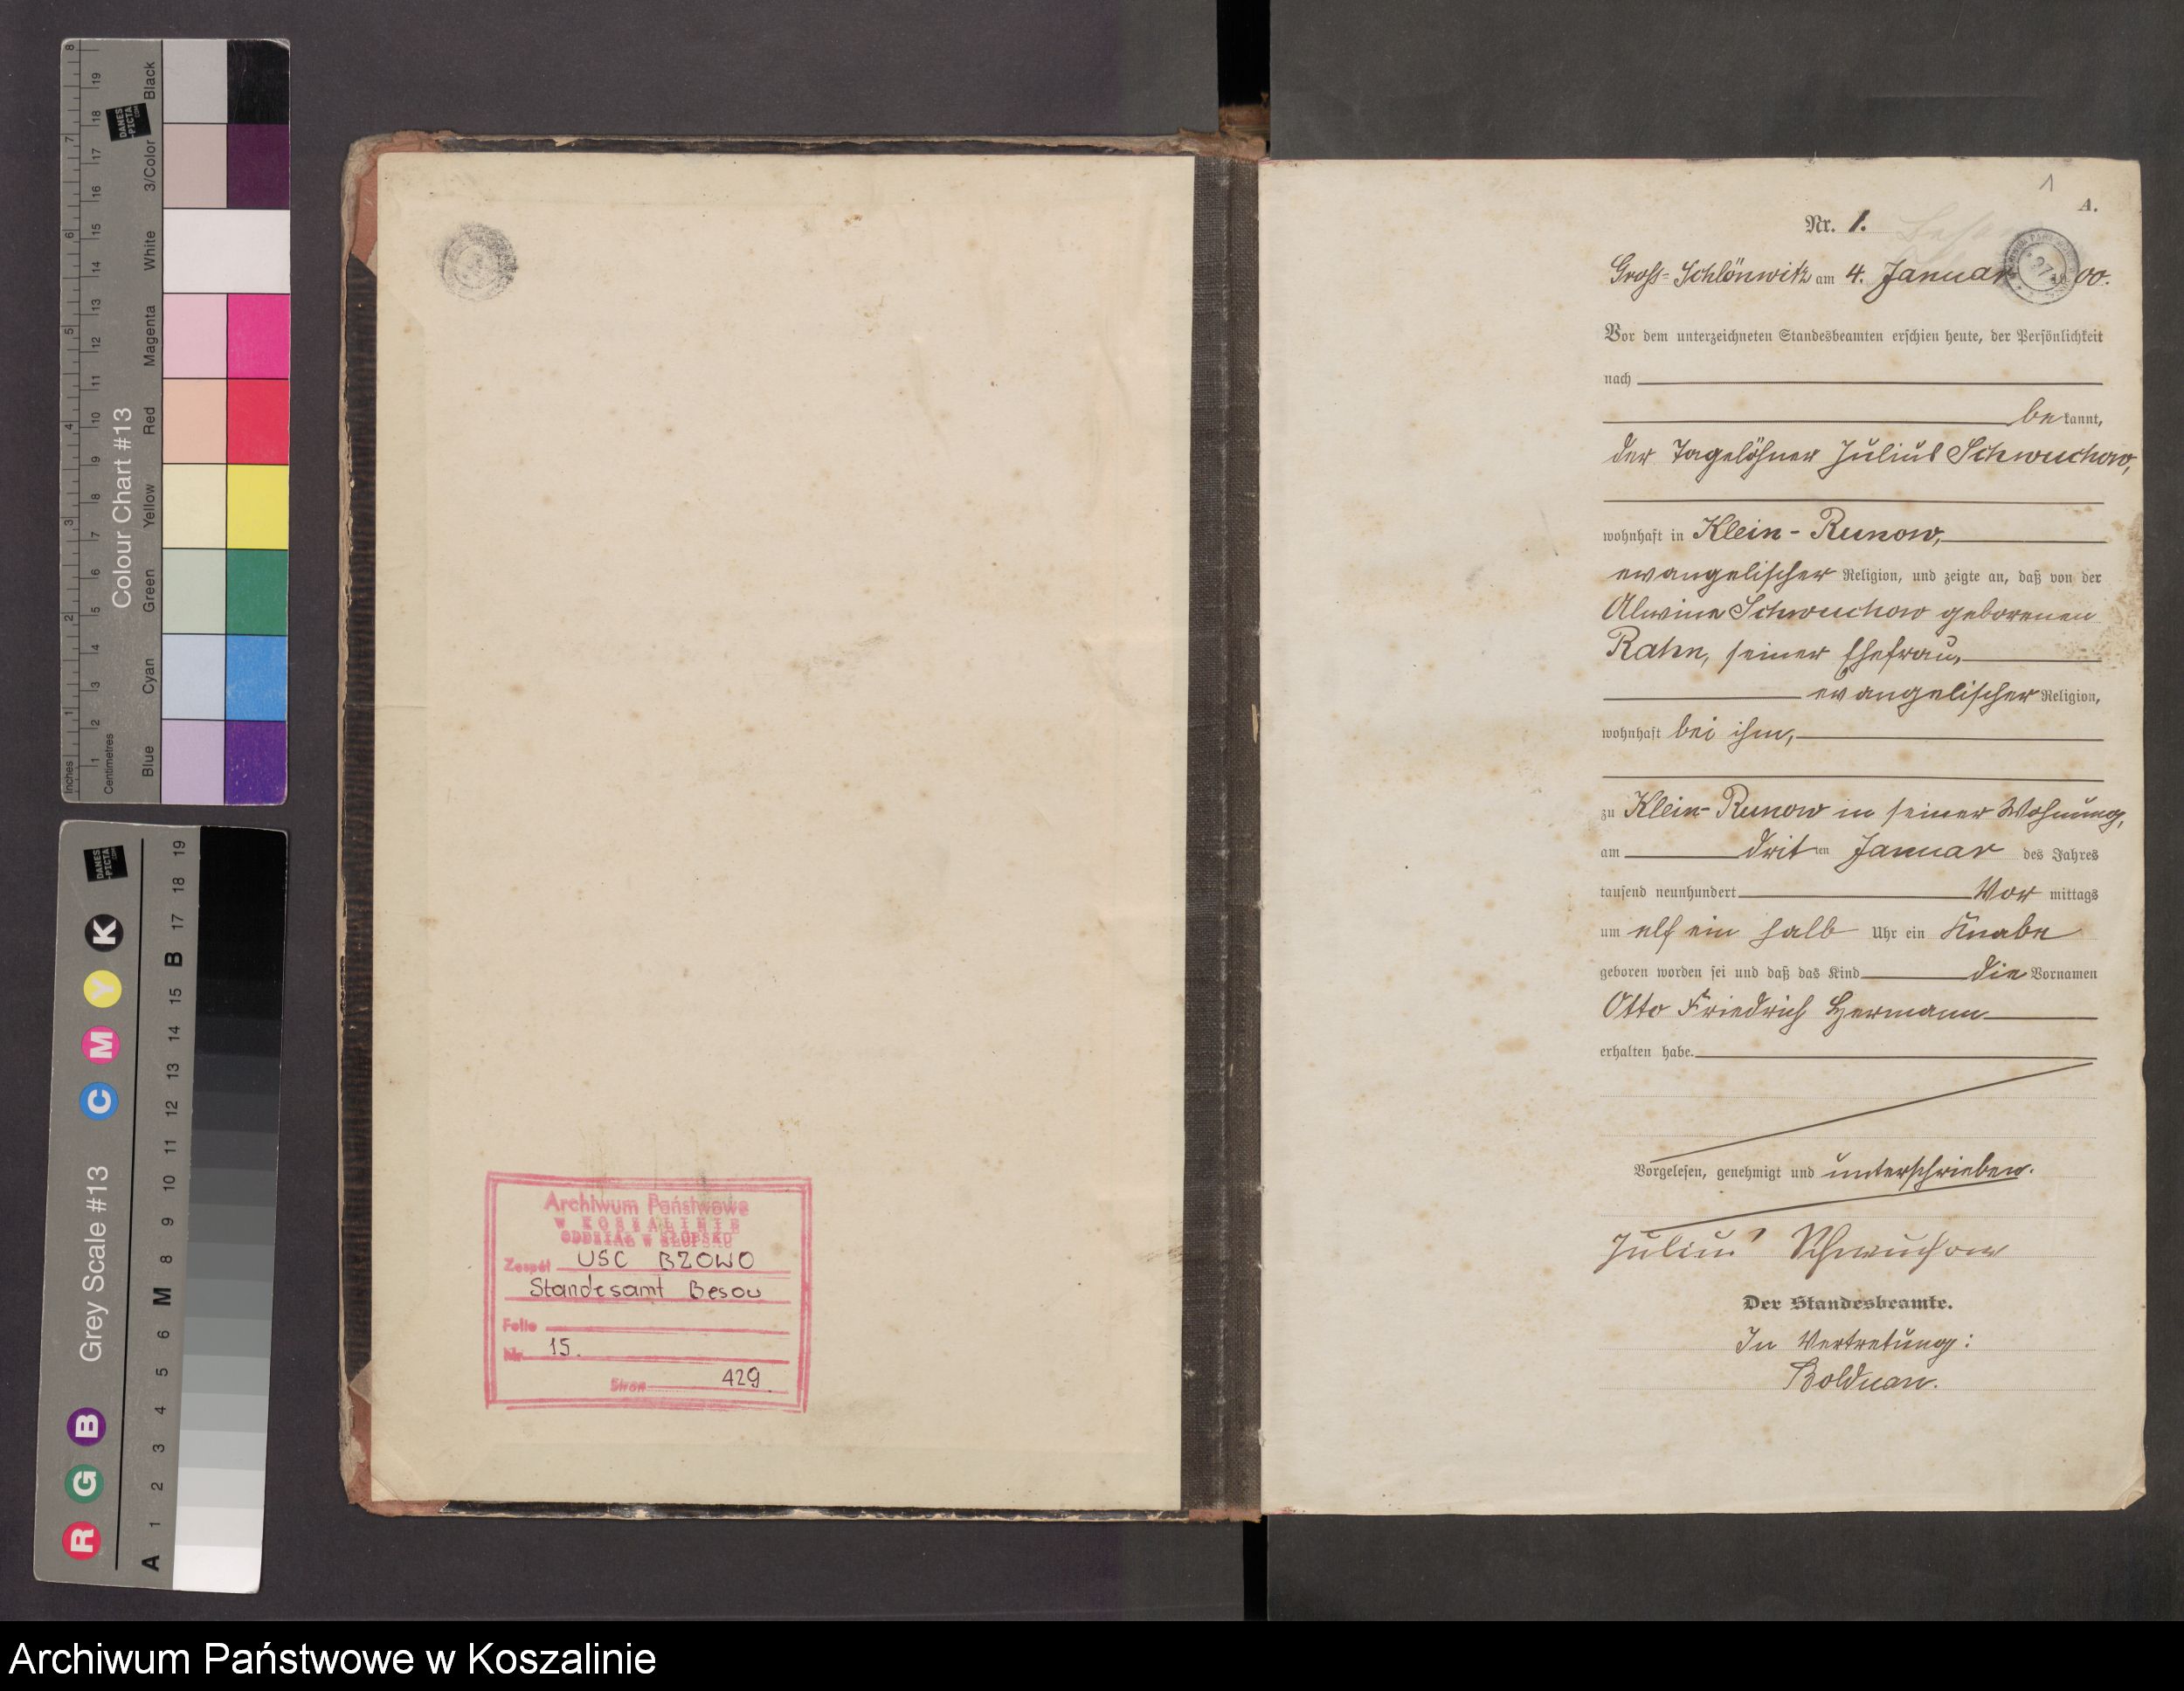 Colour Chart #13
Inches
Centimetres
1 2 3 4 5 6 7 8
1 2 3 4 5 6 7 8 9 10 11 12 13 14 15 16 17 18 19
Blue
Cyan
Green
Yellow
Red
Magenta
White
3/Color
Black
DANES
-PICTA
.COM
Grey Scale #13
R G B C M Y K
A 1 2 3 4 5 6 M 8 9 10 11 12 13 14 15 B 17 18 19
DANES
-PICTA
.COM
Archiwum Państwowe
W KOSZALINIE
ODDZIAŁ W SŁUPSKU
Zespół USC BZOWO
Standesamt Besow
Folio
Nr. 15.
Stron 429
1
A.
Nr. 1.
Groß-Schlönwitz am 4. Januar 00.
Vor dem unterzeichneten Standesbeamten erschien heute, der Persönlichkeit
nach
bekannt,
der Tagelöhner Julius Schwuchow,
wohnhaft in Klein-Runow,
evangelischer Religion, und zeigte an, daß von der
Alwine Schwuchow geborenen
Rahn, seiner Ehefrau,
evangelischer Religion,
wohnhaft bei ihm,
zu Klein-Runow in seiner Wohnung,
am dritten Januar des Jahres
tausend neunhundert Vormittags
um elf ein halb Uhr ein Knabe
geboren worden sei und daß das Kind die Vornamen
Otto Friedrich Hermann
erhalten habe.
Vorgelesen, genehmigt und unterschrieben.
Julius Schwuchow
Der Standesbeamte.
In Vertretung:
Bolduan.
Archiwum Państwowe w Koszalinie